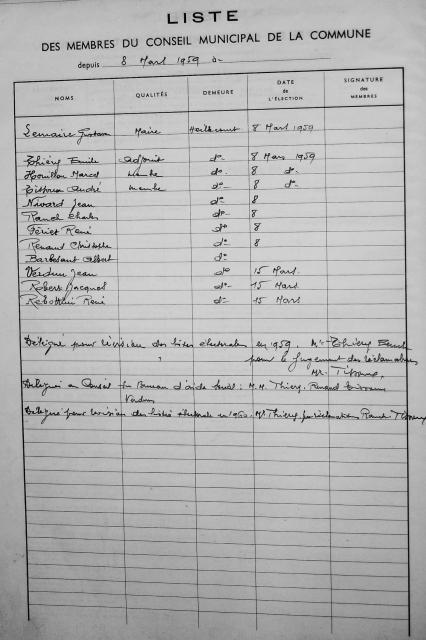 LISTE
DES MEMBRES DU CONSEIL MUNICIPAL DE LA COMMUNE
depuis 8 Mars 1959 à
NOMS QUALITÉS DEMEURE DATE de L'ÉLECTION SIGNATURE des MEMBRES
Lemaire Maire 8 Mars 1959
Thiéry Emile adjoint do 8 Mars 1959
Houillon Marcel membre do 8 do
Tisseran André membre do 8 do
Nivard Jean do 8
Ranch Charles do 8
Fériet René do 8
Renaud Christophe do 8
Barbesant Albert do
Verdun Jean do 15 Mars
Robert Jacques do 15 Mars
René do 15 Mars
Délégué pour révision des listes électorales en 1959. Mr Thiéry Emile
pour le jugement des réclamations
Mr. Tisseran
Délégués du Conseil Bureau d'aide : M.M. Thiéry. Renaud Tisseran
Verdun
Délégué pour révision des listes électorale en 1960. Mr Thiéry, réclamations Ranch